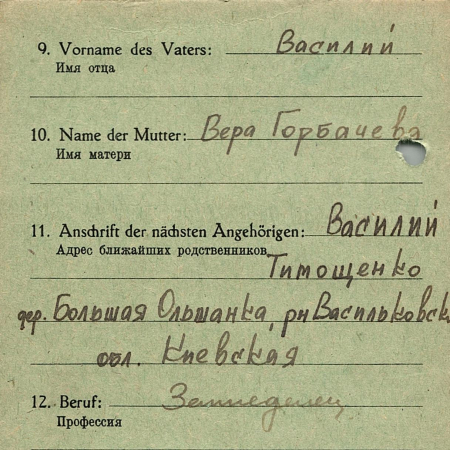 9. Vorname des Vaters: Василий
Имя отца
10. Name der Mutter: Вера Горбачева
Имя матери
11. Anschrift der nächsten Angehörigen: Василий
Адрес ближайших родственников
Тимощенко
дер. Большая Ольшанка, рн Васильковск
обл. Киевская
12. Beruf:
Профессия